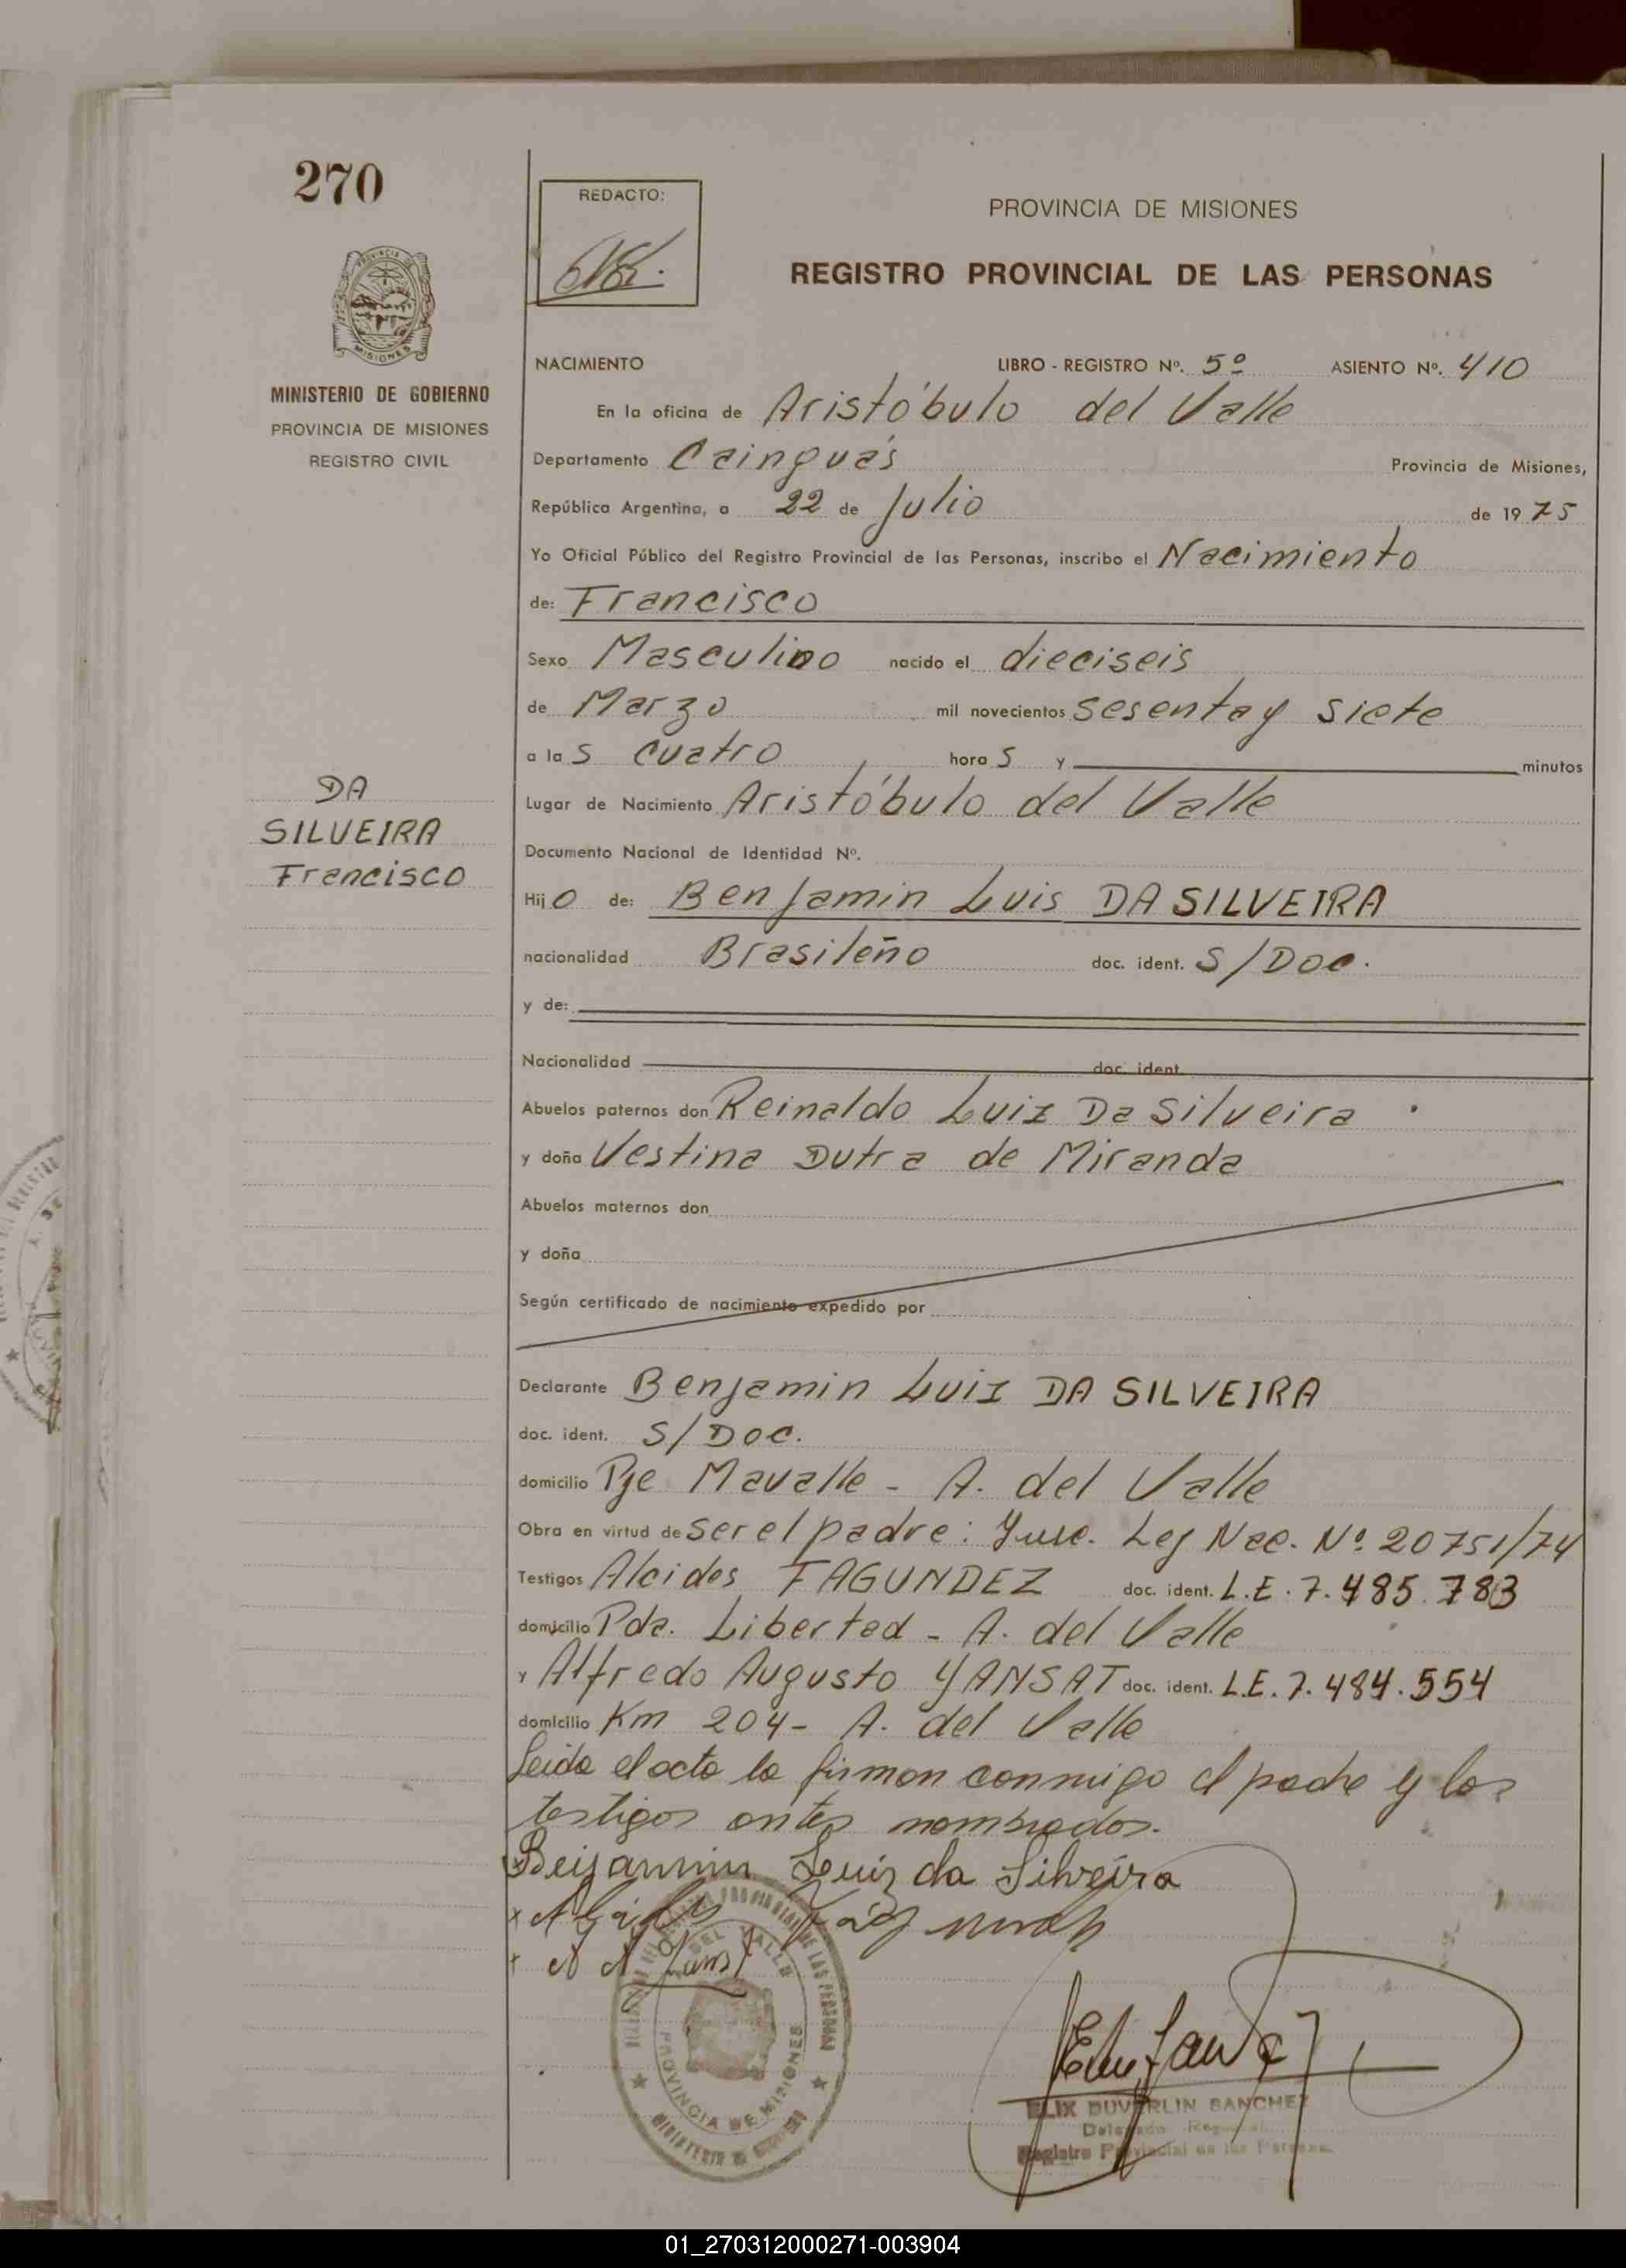 270
REDACTO:
PROVINCIA DE MISIONES
REGISTRO PROVINCIAL DE LAS PERSONAS
MINISTERIO DE GOBIERNO
PROVINCIA DE MISIONES
REGISTRO CIVIL
NACIMIENTO LIBRO - REGISTRO Nº. 5º ASIENTO Nº. 410
En la oficina de Aristóbulo del Valle
Departamento Cainguás Provincia de Misiones,
República Argentina, a 22 de Julio de 1975
Yo Oficial Público del Registro Provincial de las Personas, inscribo el Nacimiento
de: Francisco
Sexo Masculino nacido el dieciseis
de Marzo mil novecientos sesenta y siete
a las cuatro horas y minutos
Lugar de Nacimiento Aristóbulo del Valle
DA
SILVEIRA
Francisco
Documento Nacional de Identidad Nº.
Hijo de: Benjamin Luis DA SILVEIRA
nacionalidad Brasileño doc. ident. S/Doc.
y de:
Nacionalidad doc. ident.
Abuelos paternos don Reinaldo Luiz Da Silveira
y doña Vestina Dutra de Miranda
Abuelos maternos don
y doña
Según certificado de nacimiento expedido por
Declarante Benjamin Luiz DA SILVEIRA
doc. ident. S/Doc.
domicilio Pje Mavalle - A. del Valle
Obra en virtud de ser el padre: Ley Nac. Nº 20751/74
Testigos Alcides FAGUNDEZ doc. ident. L.E. 7.485.783
domicilio Pda. Libertad - A. del Valle
y Alfredo Augusto YANSAT doc. ident. L.E. 7.484.554
domicilio Km 204 - A. del Valle
Leida el acta la firman conmigo el padre y los
testigos antes nombrados.
Benjamin Luiz da Silveira
DEL VALLE
PROVINCIA DE MISIONES
ELIX DUVERLIN SANCHEZ
Delegado Regional
Registro Provincial de las Personas
01_270312000271-003904